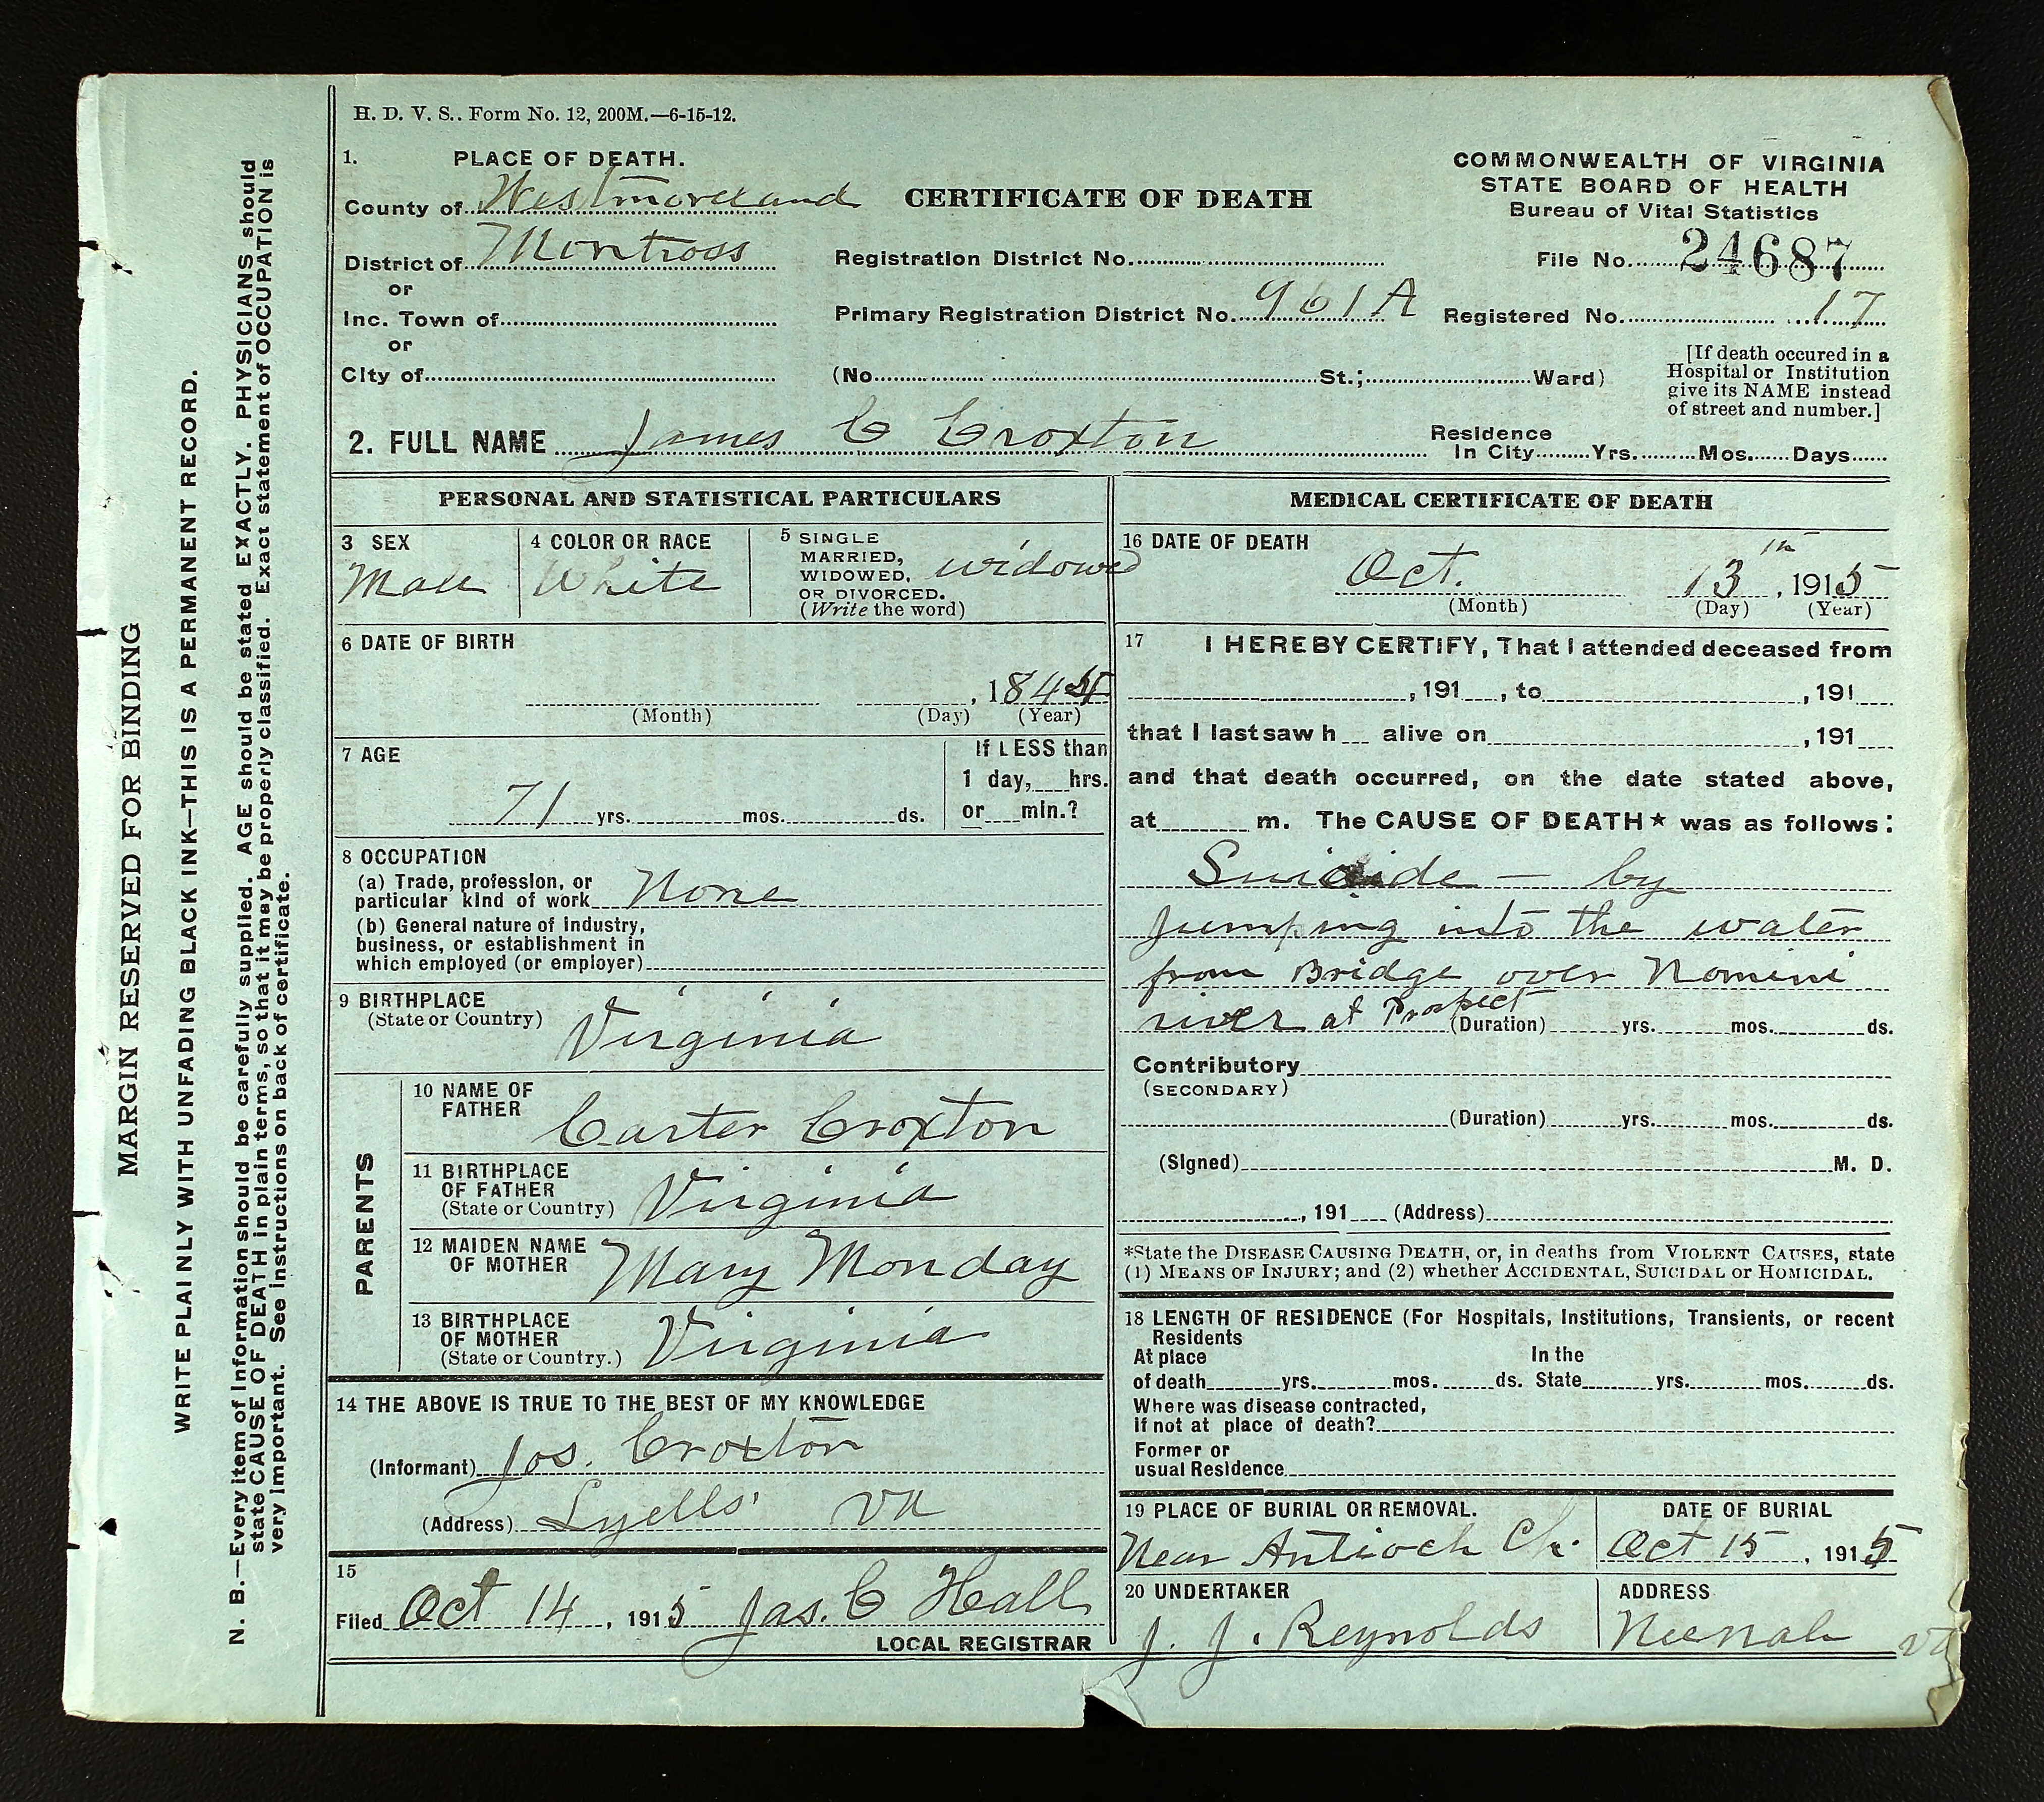 MARGIN RESERVED FOR BINDING
WRITE PLAINLY WITH UNFADING BLACK INK—THIS IS A PERMANENT RECORD.
N. B.—Every item of information should be carefully supplied. AGE should be stated EXACTLY. PHYSICIANS should
state CAUSE OF DEATH in plain terms, so that it may be properly classified. Exact statement of OCCUPATION is
very important. See instructions on back of certificate.
H. D. V. S.. Form No. 12, 200M.—6-15-12.
1. PLACE OF DEATH.
County of Westmoreland
District of Montross
or
Inc. Town of
or
City of
CERTIFICATE OF DEATH
COMMONWEALTH OF VIRGINIA
STATE BOARD OF HEALTH
Bureau of Vital Statistics
Registration District No.
File No. 24687
Primary Registration District No. 961A Registered No. 17
(No. St.; Ward)
[If death occured in a
Hospital or Institution
give its NAME instead
of street and number.]
2. FULL NAME James C Croxton
Residence
In City Yrs. Mos. Days
PERSONAL AND STATISTICAL PARTICULARS
3 SEX
Male
4 COLOR OR RACE
White
5 SINGLE
MARRIED,
WIDOWED,
OR DIVORCED.
(Write the word)
widowed
6 DATE OF BIRTH
, 1844
(Month) (Day) (Year)
7 AGE
71 yrs. mos. ds.
If LESS than
1 day, hrs.
or min.?
8 OCCUPATION
(a) Trade, profession, or
particular kind of work None
(b) General nature of industry,
business, or establishment in
which employed (or employer)
9 BIRTHPLACE
(State or Country)
Virginia
PARENTS
10 NAME OF
FATHER
Carter Croxton
11 BIRTHPLACE
OF FATHER
(State or Country)
Virginia
12 MAIDEN NAME
OF MOTHER
Mary Monday
13 BIRTHPLACE
OF MOTHER
(State or Country.)
Virginia
14 THE ABOVE IS TRUE TO THE BEST OF MY KNOWLEDGE
(Informant) Jos. Croxton
(Address) Lyells' Va
15
Filed Oct 14, 1915 Jas. C Hall
LOCAL REGISTRAR
MEDICAL CERTIFICATE OF DEATH
16 DATE OF DEATH
Oct. 13th, 1915
(Month) (Day) (Year)
17 I HEREBY CERTIFY, That I attended deceased from
, 191 , to , 191
that I last saw h alive on , 191
and that death occurred, on the date stated above,
at m. The CAUSE OF DEATH* was as follows:
Suicide — by
jumping into the water
from Bridge over Nomini
river at Prospect
(Duration) yrs. mos. ds.
Contributory
(SECONDARY)
(Duration) yrs. mos. ds.
(Signed) M. D.
, 191 (Address)
*State the DISEASE CAUSING DEATH, or, in deaths from VIOLENT CAUSES, state
(1) MEANS OF INJURY; and (2) whether ACCIDENTAL, SUICIDAL or HOMICIDAL.
18 LENGTH OF RESIDENCE (For Hospitals, Institutions, Transients, or recent
Residents
At place In the
of death yrs. mos. ds. State yrs. mos. ds.
Where was disease contracted,
if not at place of death?
Former or
usual Residence
19 PLACE OF BURIAL OR REMOVAL.
Near Antioch Ch.
DATE OF BURIAL
Oct 15, 1915
20 UNDERTAKER
J. J. Reynolds
ADDRESS
Neenah Va